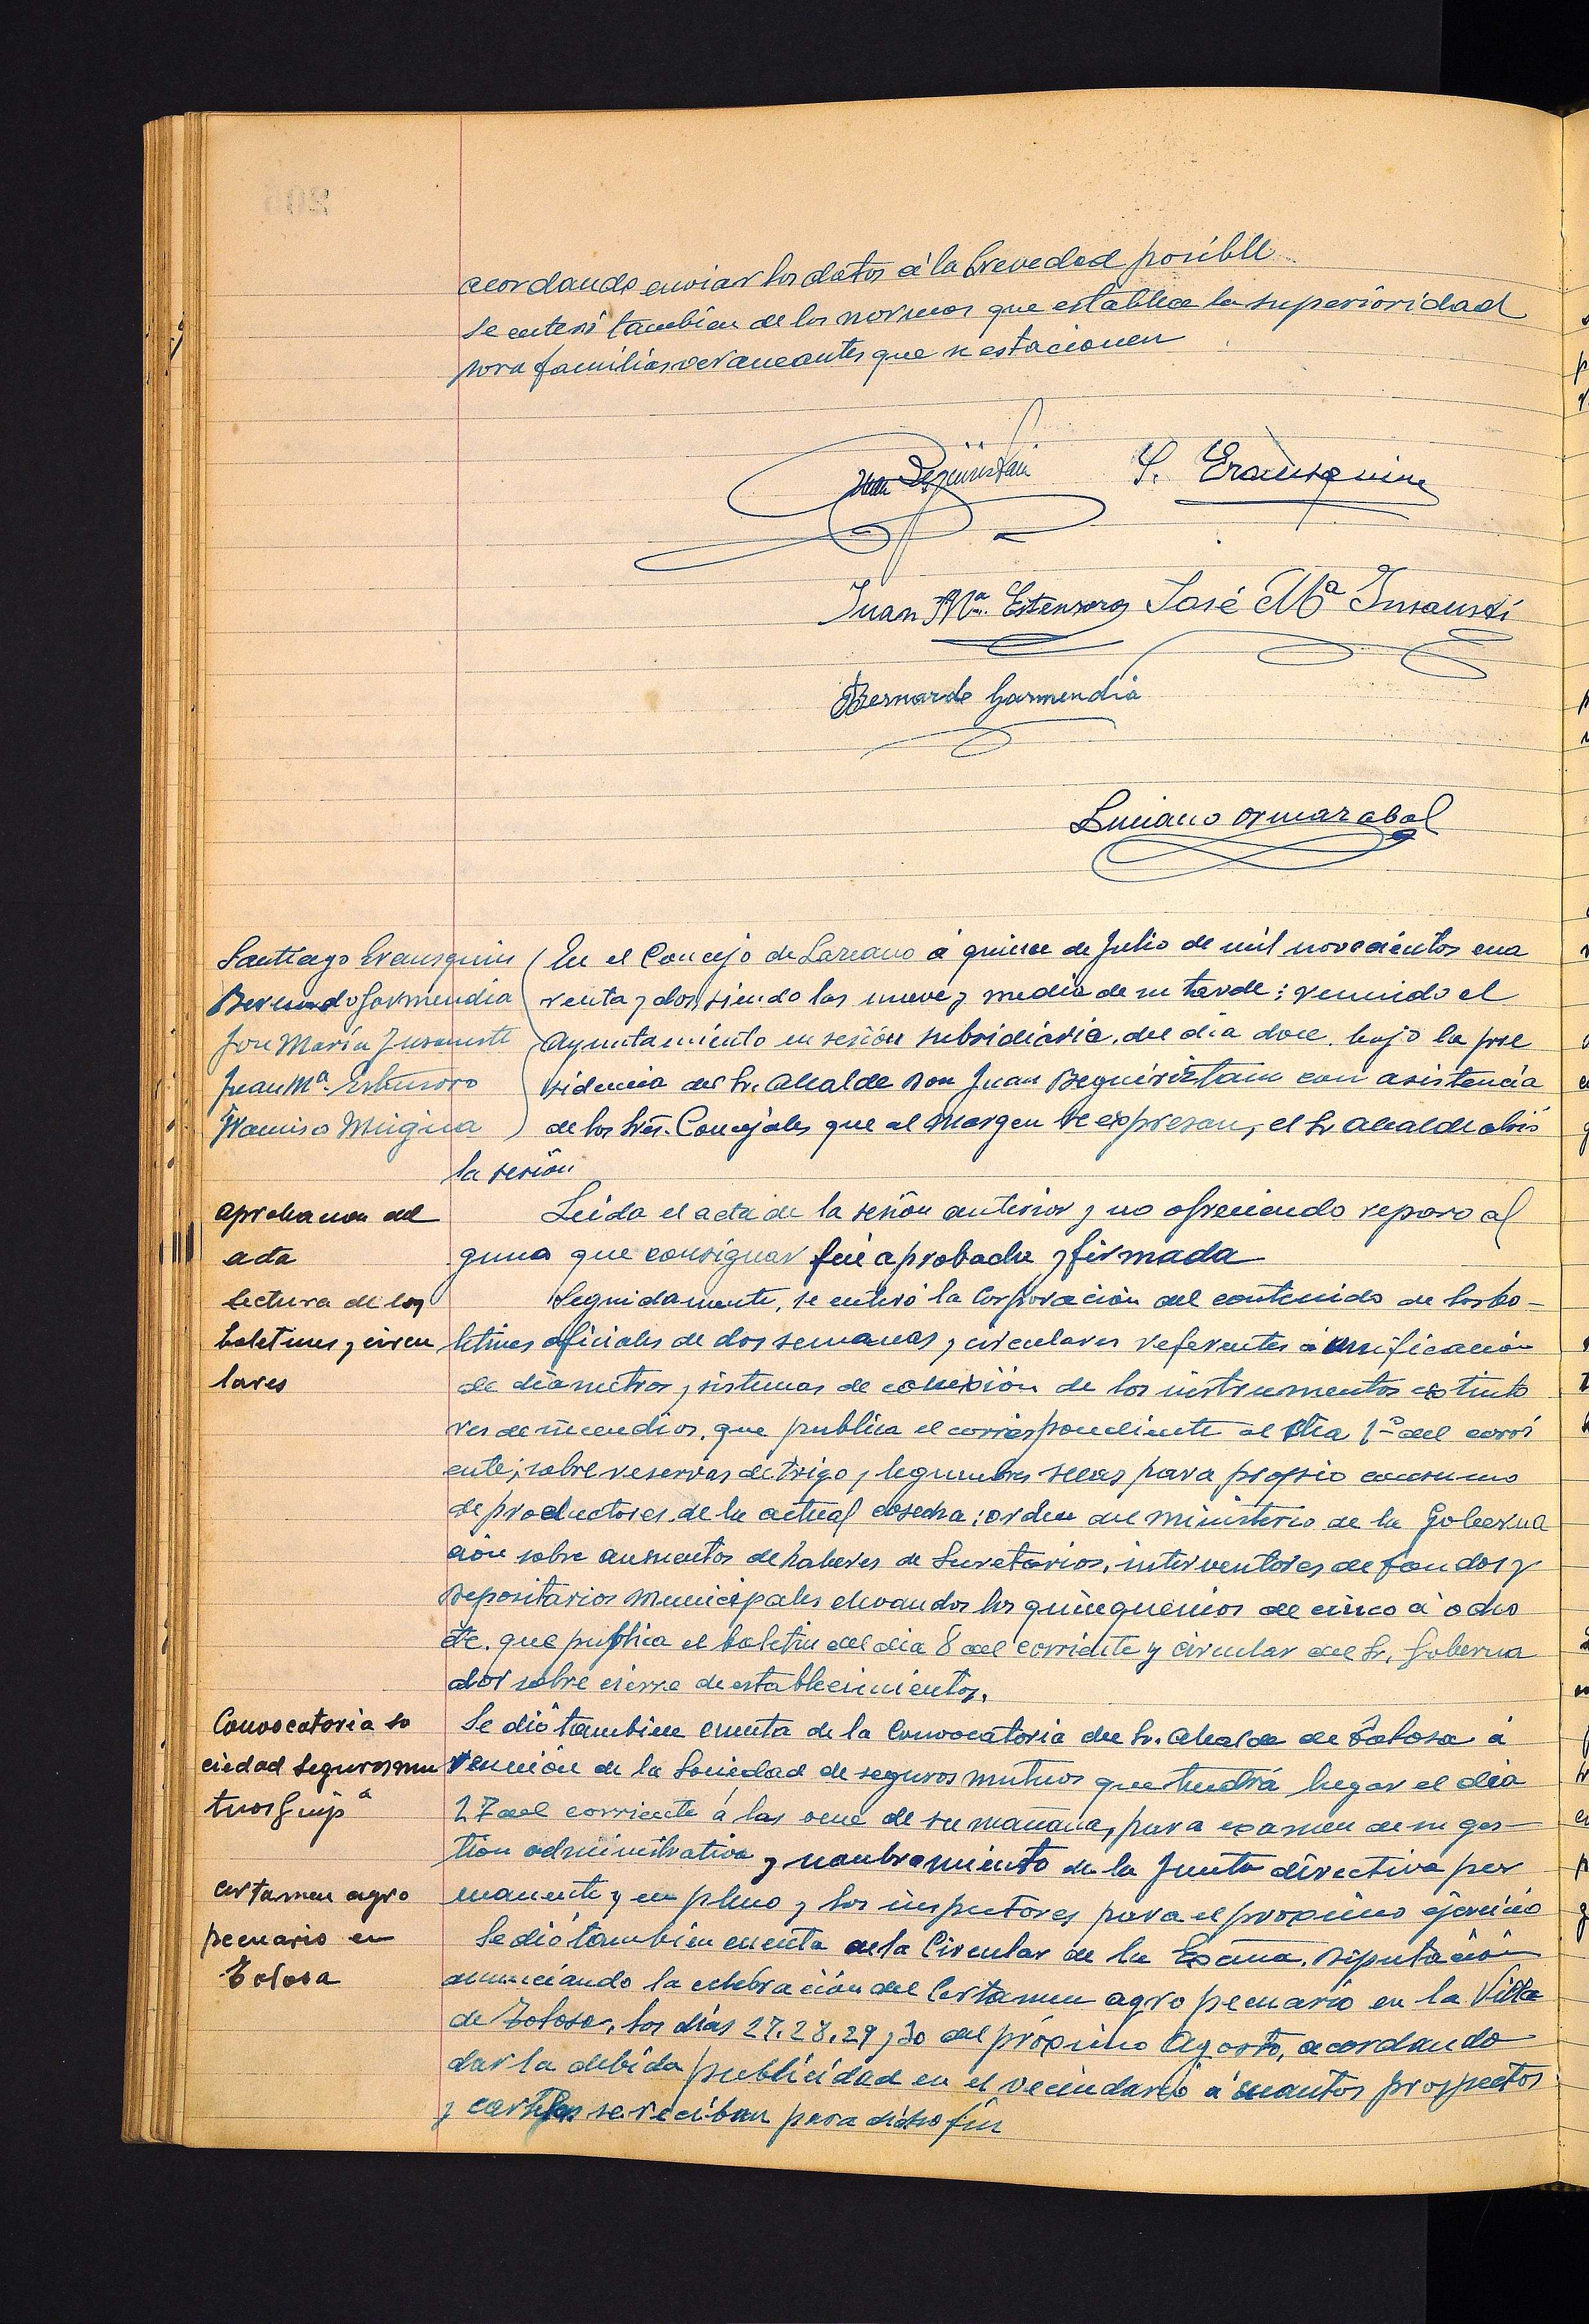 acordando enviar los datos á la brevedad posible
Se enteró tambien de las normas que establece la superioridad
para familias veraneantes que se estacionen
Juan Beguiristain S. Erausquin
Juan Mª Estensoro José Mª Insausti
Bernardo Garmendia
Luciano Ormazabal
Santiago Erausquin
Bernardo Garmendia
Jose Maria Insausti
Juan Mª Estensoro
Francisco Mugica
En el Concejo de Lazcano á quince de Julio de mil novecientos cua
renta y dos, siendo las nueve y media de su tarde: reunido el
Ayuntamiento en sesión subsidiaria del dia doce bajo la pre
sidencia del Sr. Alcalde Don Juan Beguiristain con asistencia
de los Sres. Concejales que al margen se expresan, el Sr Alcalde abrió
la sesión
aprobacion del
acta
Leida el acta de la sesión anterior y no ofreciendo reparo al
guno que consignar fué aprobada y firmada
lectura de los
boletines y circu
lares
Seguidamente, se enteró la Corporación del contenido de los bo-
letines oficiales de dos semanas y circulares referentes á unificación
de diametros y sistemas de conexión de los instrumentos extinto
res de incendios, que publica el correspondiente al dia 1º del corri
ente; sobre reservas de trigo y legumbres secas para propio consumo
de productores, de la actual cosecha; orden del ministerio de la Goberna
ción sobre aumentos de haberes de Secretarios, interventores de fondos y
Depositarios Municipales elevando los quinquenios de cinco á ocho
etc. que publica el boletin del dia 8 del corriente y circular del Sr. Goberna
dor sobre cierre de establecimientos.
Convocatoria so
ciedad Seguros mu
tuos Guipª
Se dió tambien cuenta de la Convocatoria del Sr. Alcalde de Tolosa á
reunión de la Sociedad de seguros mutuos que tendrá lugar el dia
27 del corriente á las once de su mañana, para examen de su ges-
tion administrativa y nombramiento de la Junta directiva per
manente y en pleno y los inspectores para el proximo ejercicio
certamen agro
pecuario en
Tolosa
Se dió tambien cuenta de la Circular de la Excma. Diputación
anunciando la celebración del Certamen agro pecuario en la Villa
de Tolosa, los dias 27.28.29 y 30 del próximo Agosto, acordando
dar la debida publicidad en el vecindario á cuantos prospectos
y carteles se reciban para dicho fin